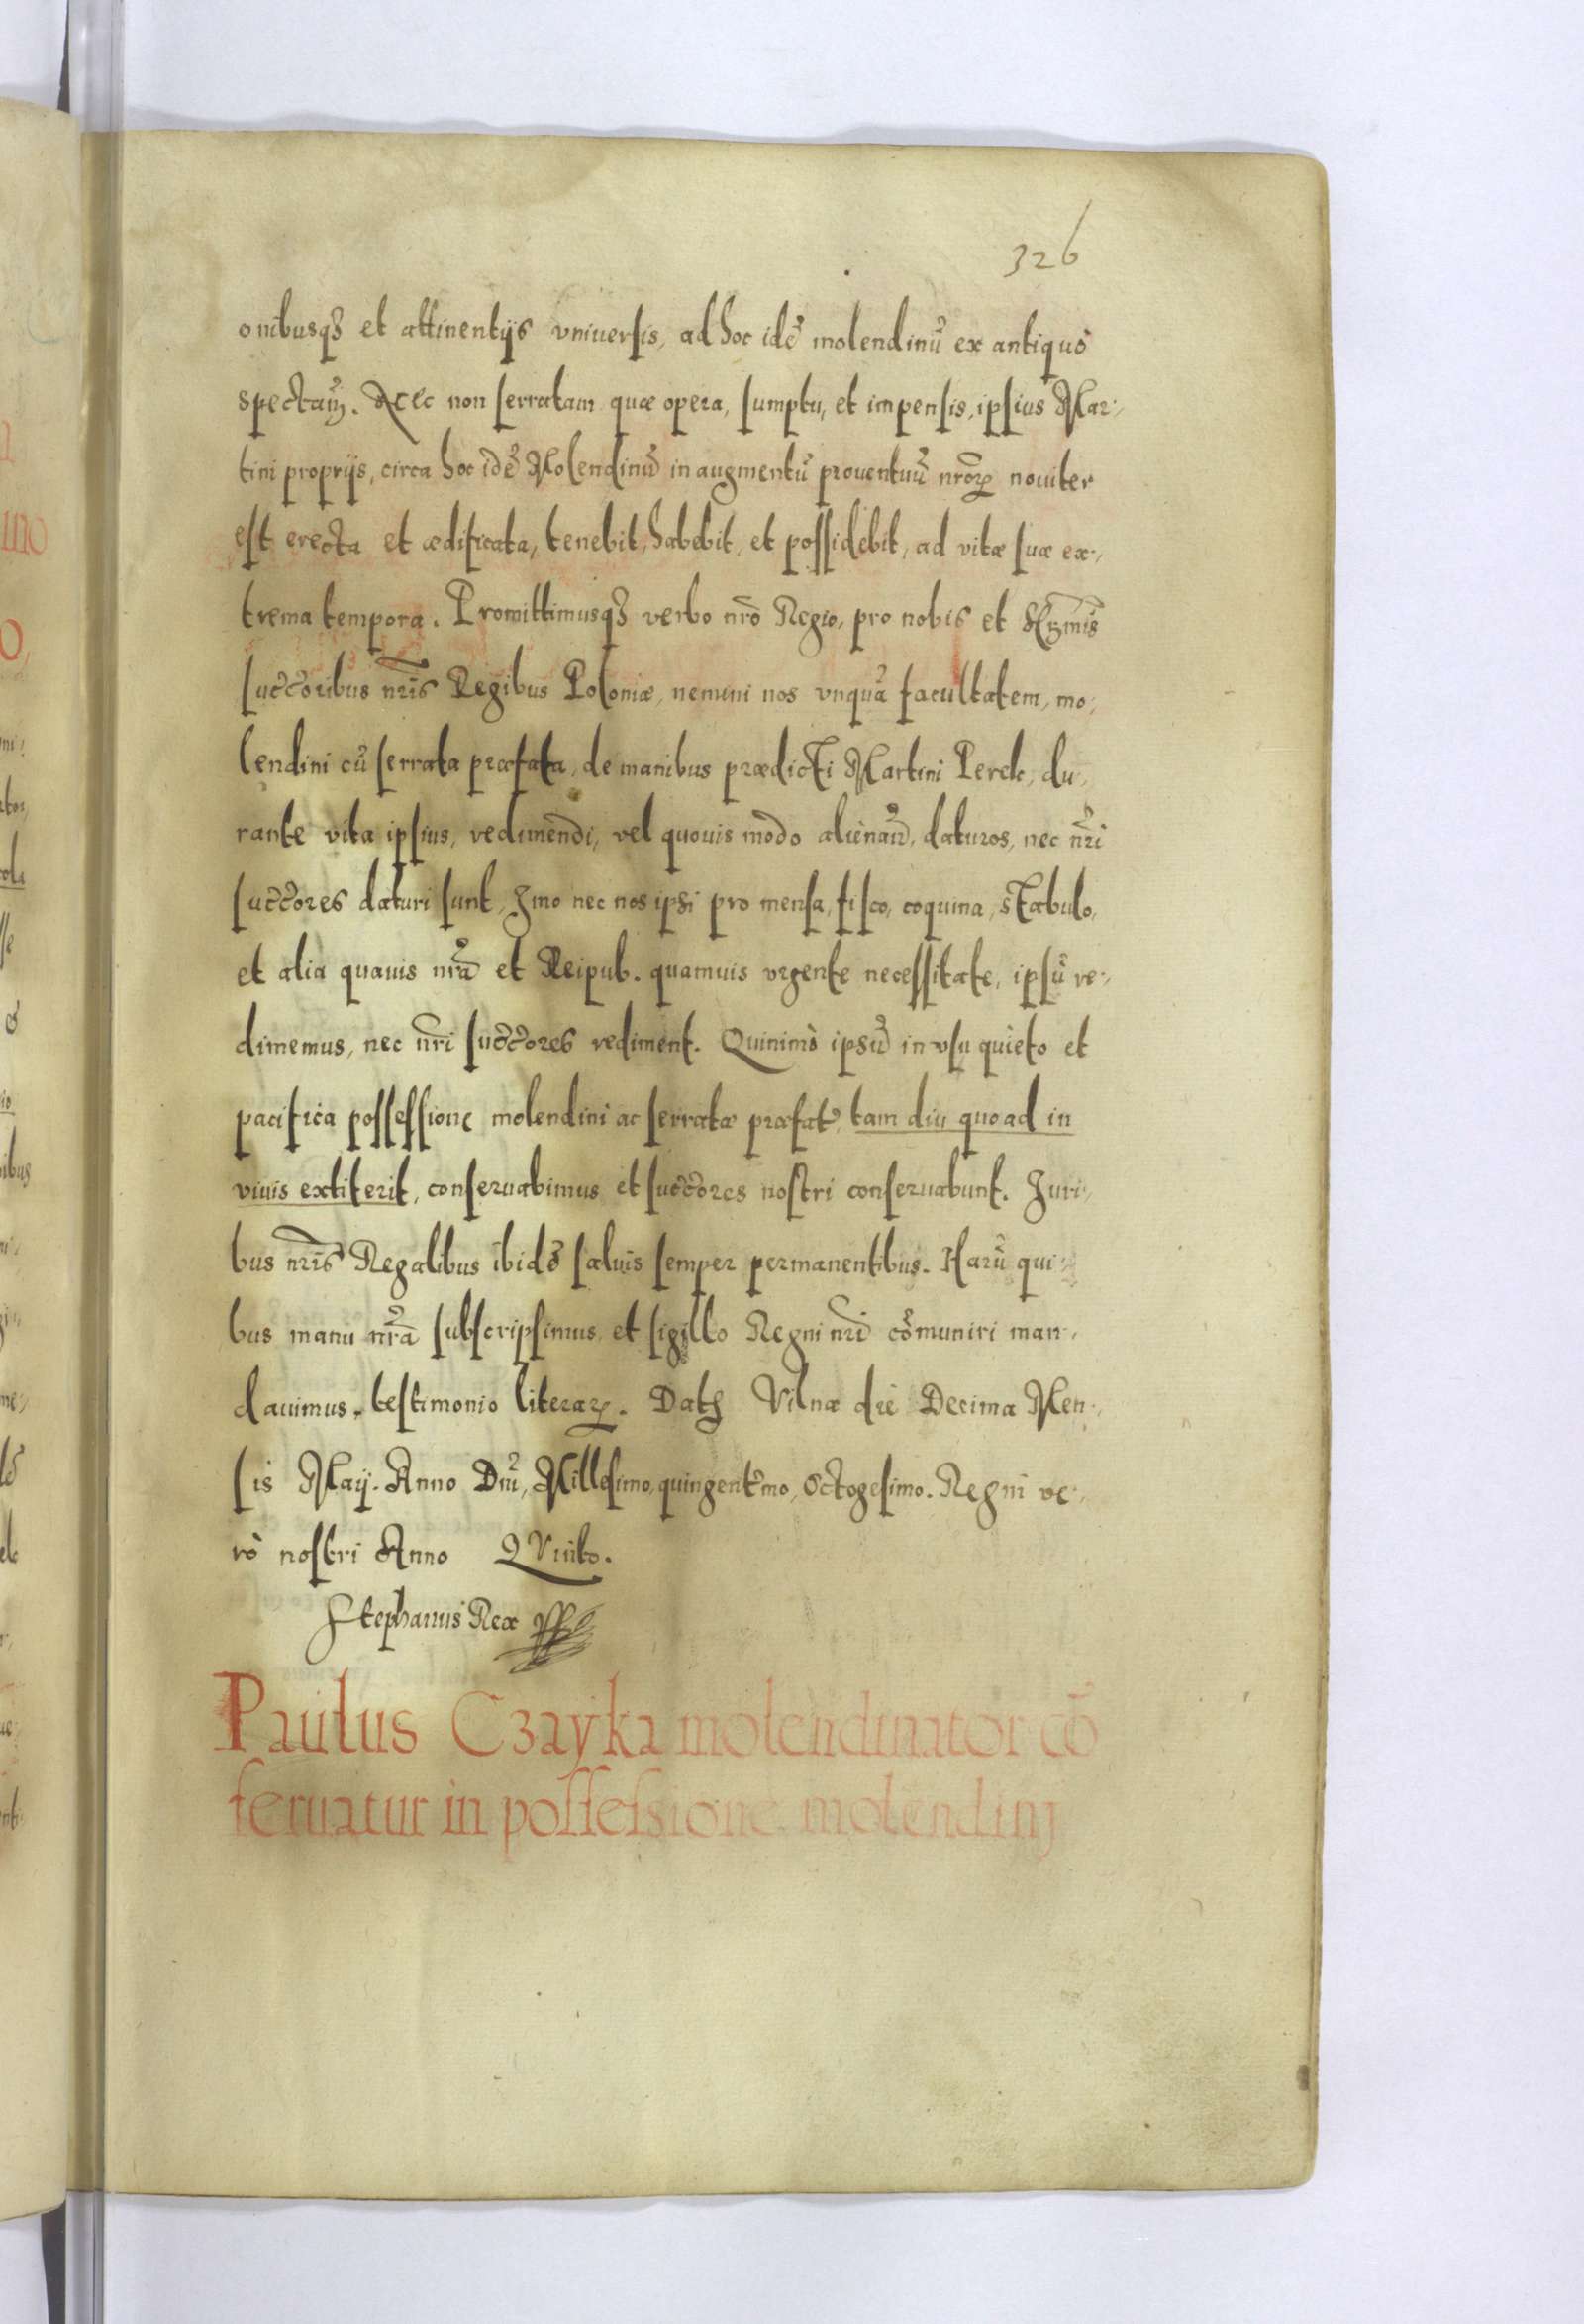 326
onibusqȝ et attinentijs vniuersis, ad hoc idē molendinū ex antiquo
spectañ. Nec non serratam quæ opera, sumptu, et impensis, ipsius Mar-
tini proprijs, circa hoc idē Molendinū in augmentū prouentuū nrōꝝ nouiter
est erecta et ædificata, tenebit, habebit, et possidebit, ad vitæ suæ ex-
trema tempora. Promittimusqȝ verbo nrō Regio, pro nobis et
succ̄oribus nrīs Regibus Poloniæ, nemini nos vnquā facultatem, mo-
lendini cū serrata præfata, de manibus prædicti Martini Perck, du-
rante vita ipsius, redimendi, vel quouis modo alienañd, daturos, nec nrī
succ̄ores daturi sunt, Imo nec nos ipsi pro mensa, fisco, coquina, stabulo,
et alia quauis nrā et Reipub. quamuis vrgente necessitate, ipsū re-
dimemus, nec nrī succ̄ores rediment. Quinimò ipsū in vsu quieto et
pacifica possessione molendini ac serratæ præfat̄, tam diu quoad in
viuis extiterit, conseruabimus et succ̄ores nostri conseruabunt. Iuri-
bus nrīs Regalibus ibidē saluis semper permanentibus. Harū qui-
bus manu nrā subscripsimus, et sigillo Regni nrī cōmuniri man-
dauimus, testimonio literaꝝ. Datȝ Vilnæ die Decima Men-
sis Maij. Anno Dnī, Millesimo, quingentm̄o, octogesimo. Regni ve-
rò nostri Anno QVinto.
Stephanus Rex
Paulus Czayka molendinator cō
seruatur in possessione molendinj